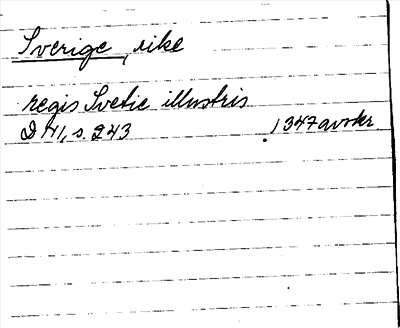 Sverige, rike
regis Svetie illustris
D XI, s. 243 1347 avskr.